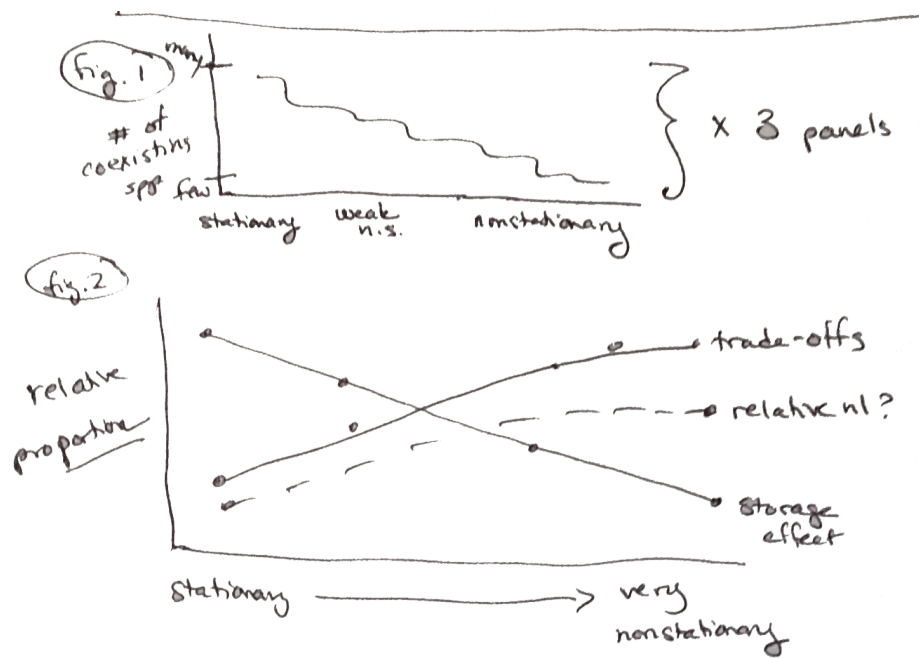 fig. 1
many
# of
coexisting
spp
few
x 3 panels
stationary
weak
n.s.
nonstationary
fig. 2
relative
proportion
trade-offs
relative nl?
storage
effect
stationary
very
nonstationary